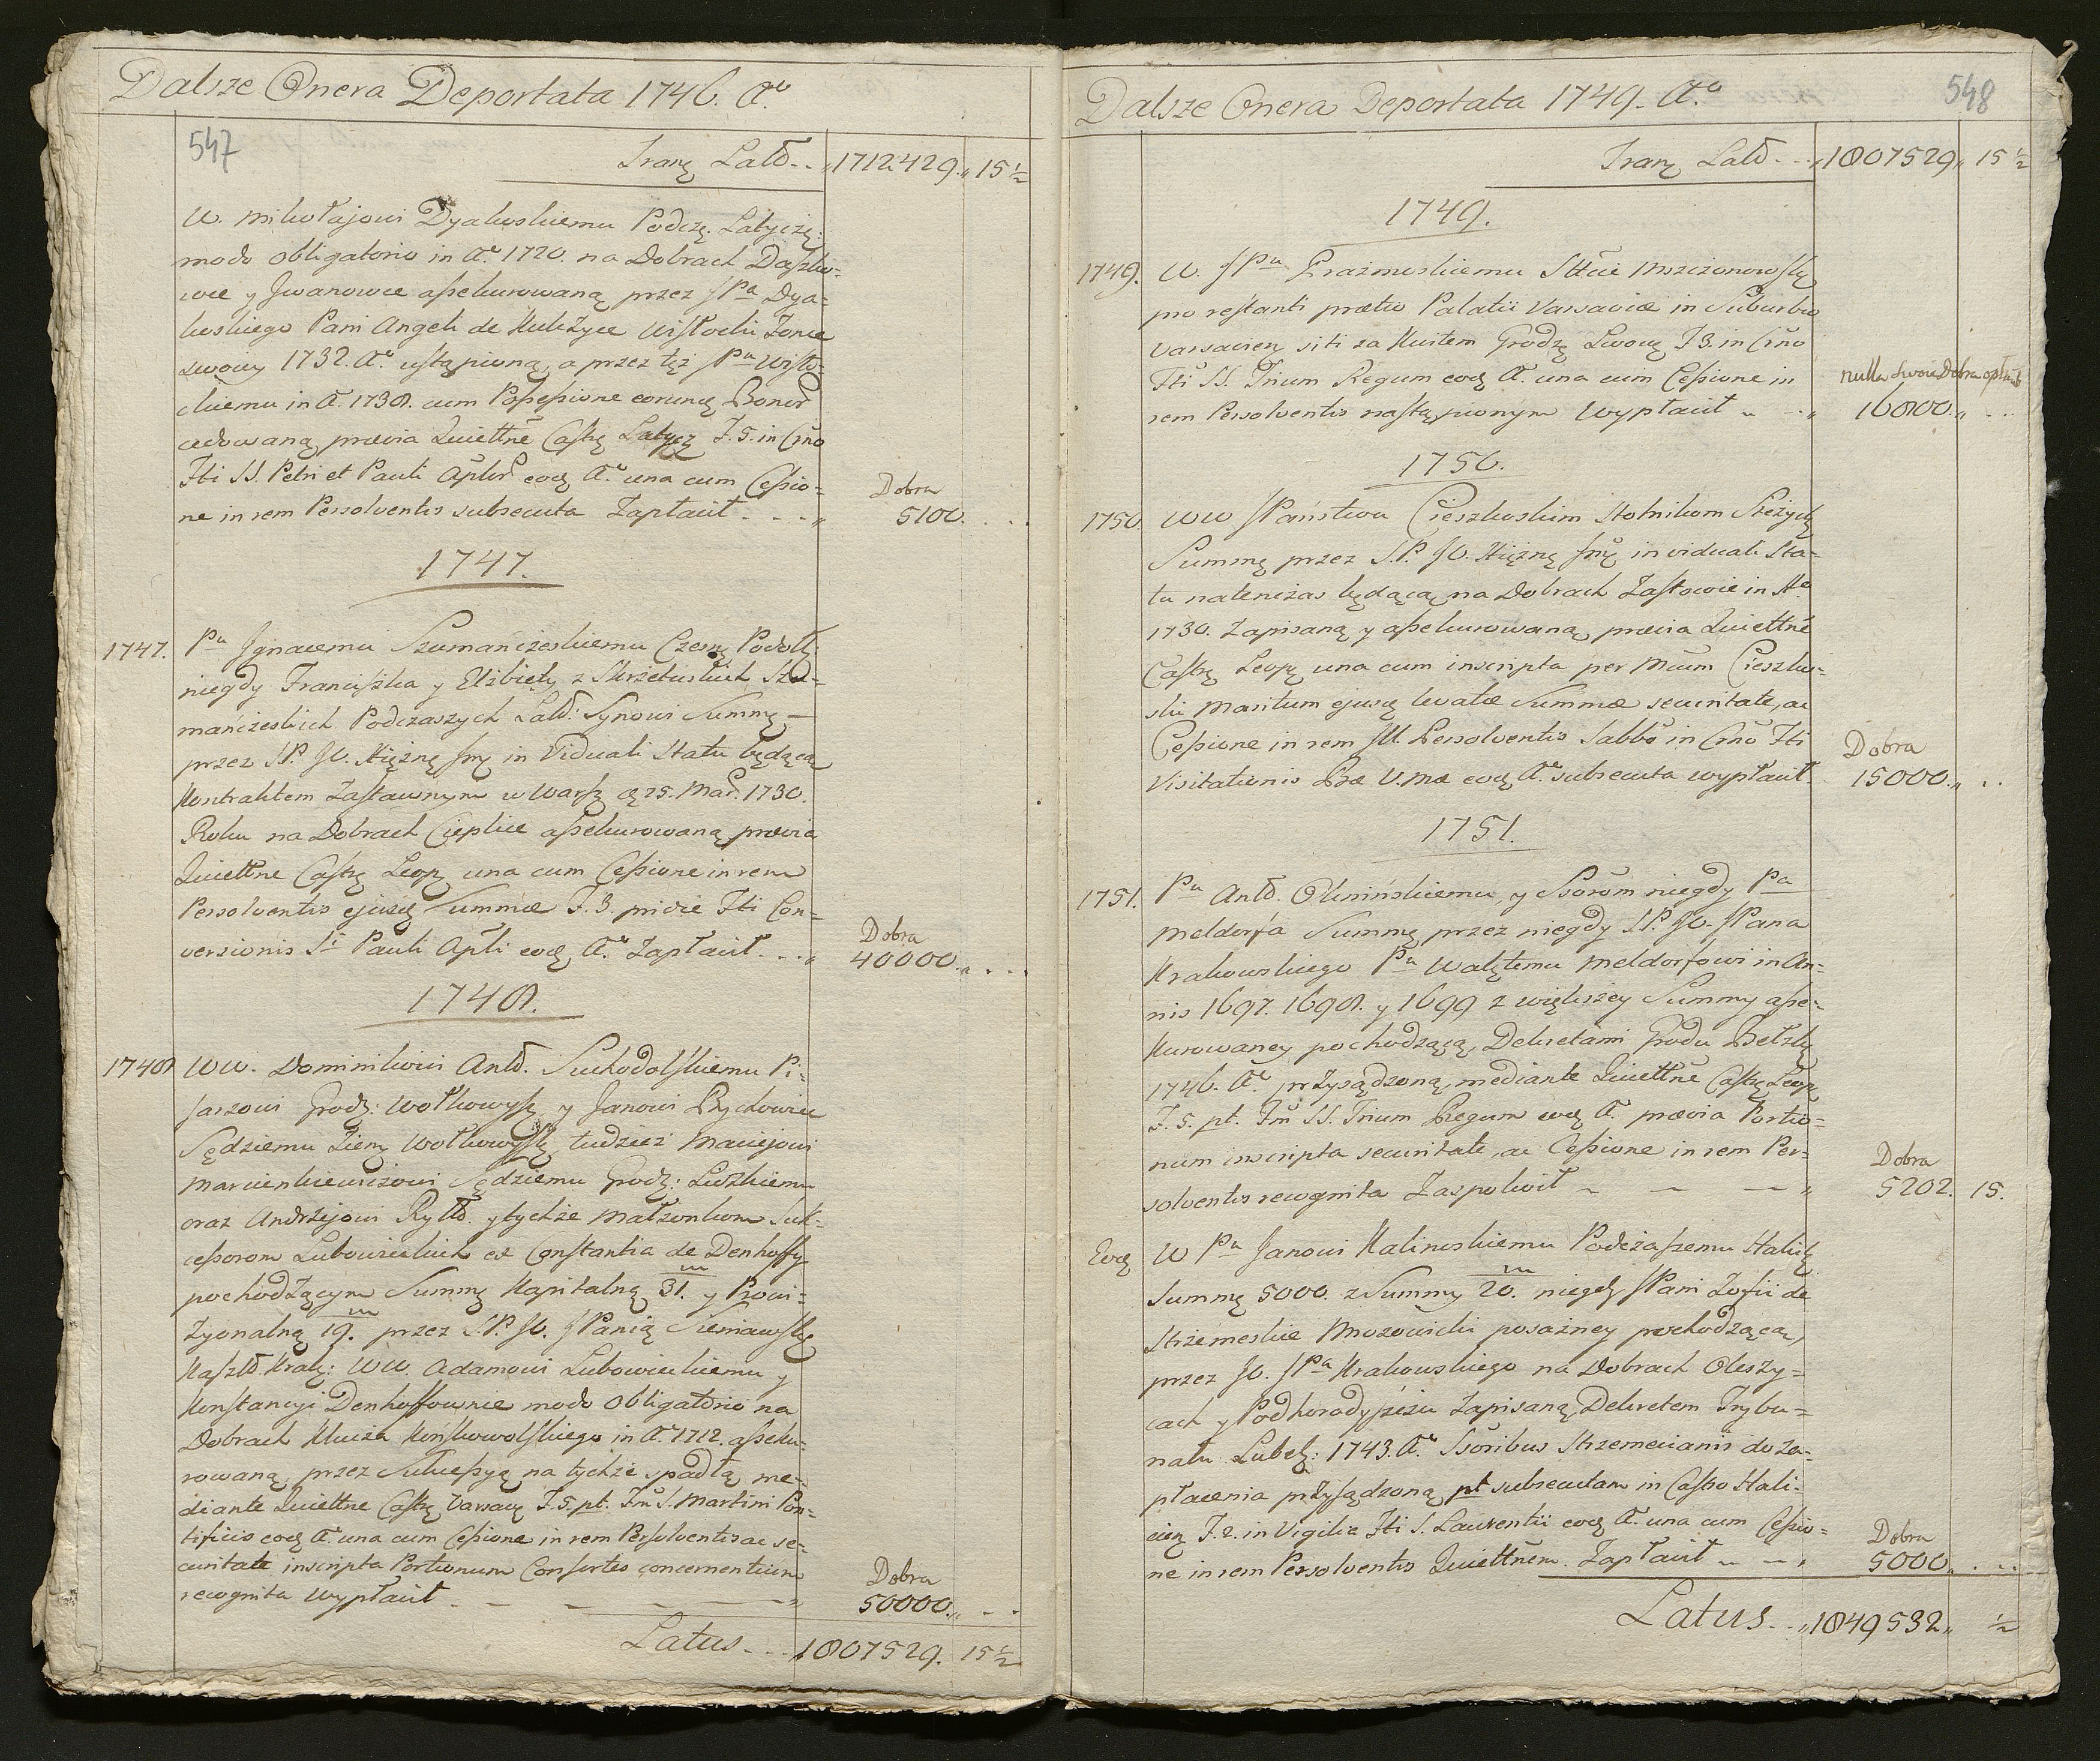 Dalsze Onera Deportata 1746. Aº
547
Tranz Latd - - 1712429. 15 ½
W. Mikołajowi Dyakoskiemu Podcz. Latyczę:
modo obligatorio in Aº 1720. na Dobrach Daszko=
wce y Jwanowce assekurowaną przez JPa Dya=
koskiego Pani Angeli de Kulczyce Wisłocki Zonie
swoiey 1732. Aº ustąpioną, a przez tęż Pu Wisło=
ckiemu in Aº 1738. cum Possessione eorunq Bonor
cedowaną, prævia Quiettne Castrz Latycz F. 5. in Crno
Fti SS. Petri et Pauli Aplor eodz Aº una cum Cessio=
ne in rem Persolventis subsecuta Zapłacił - - - „
Dobra
5100. . . .
1747.
1747. Pu Jgnacemu Szumanczeskiemu Czesz Podolz
niegdy Franciszka y Elżbiety z Skrzetuskich Szu=
mańczeskich Podczaszych Latd: Synowi Summę —
przez SP. JO. Xiężnę Jmę in Viduali Statu będącą
Kontraktem Zastawnym w Warsz dz 25. Mar. 1730.
Roku na Dobrach Cieplice assekurowaną prævia
Quiettne Castrz Leopz una cum Cessione in rem
Persolventis ejusdz Summæ F. 3. pridie Fti Con=
versionis Si Pauli Apli eodz Aº Zapłacił - - „
Dobra
40000. . . .
1748.
1748 WW. Dominikowi Antd. Suchodolskiemu Pi=
sarzowi Grodz: Wołkowysz y Janowi Bychowiec
Sędziemu Ziemz Wołkowyskz tudzież Maciejowi
Marcienkiewiczowi Sędziemu Grodz: Lidzkiemu
oraz Andrzejowi Rytd. y tychże Małżonkom Suk=
cessorom Lubowieckich ex Constantia de Denhoffy
pochodzącym Summę Kapitalną 31. y Prowi=
zyonalną 19. przez S.P. JO. JPanią Sieniawską
Kasztd. Krakz: WW. Adamowi Lubowieckiemu y
Konstancyi Denhoffownie modo Obligatorio na
Dobrach Klucza Końskowolskiego in Aº 1712. asseku=
rowaną, przez Sukcessyą na tychże spadłą, me=
diante Quiettne Castrz Varsavz F. 5. pt. Fm S. Martini Pon=
tificis eodz Aº una cum Cessione in rem Persolventis ac se=
curitate inscripta Portionum Consortes concernentium
recognita wypłacił - - - - - „
Dobra
50000. - -
Latus - - 1807529. 15 ½
Dalsze Onera Deportata 1749. Aº
548
Tranz Latd - - 1807529„ 15 ½
1749.
1749. W. JPu Prażmoskiemu Stście Mszczonowskz
pro restanti pretio Palatii Varsaviæ in Suburbio
Varsavienz siti za Kwitem Grodz Lwowz F 3. in Crno
Fti SS. Trium Regum eodz Aº una cum Cessione in
rem Persolventis następionym Wypłacił - - „
16800. . . .
1750.
1750. WW JPaństwu Cieszkoskim Stolnikom Stężyckz
Summę przez S.P. JO. Xiężnę Jmę in viduali Sta=
tu natenczas będącą na Dobrach Zastowie in Aº
1730. Zapisaną y assekurowaną, prævia Quiettne
Castrz Leopz una cum inscripta per Mcum Cieszko=
ski Maritum ejusdz levatæ Summæ securitate, ac
Cessione in rem Ill. Persolventis Sabbo in Crno Fti
Visitationis Bæ V. Mæ eodz Aº subsecuta wypłacił.
Dobra
15000„ . .
1751.
1751. Pu Antd. Olszińskiemu y Ssorom niegdy Pa
Meldorfa Summę przez niegdy S.P. JO. JPana
Krakowskiego Pu Walętemu Meldorfowi in An=
nis 1697. 1698. y 1699 z większey Summy asse=
kurowaney pochodzącą, Dekretami Grodu Bełzkz
1746. Aº przysądzoną, mediante Quiettne Castrz Leopz
F. 5. pt. Fm SS. Trium Regum eodz Aº prævia Portio=
num inscripta securitate, ac Cessione in rem Per=
solventis recognita Zaspokoił - - - „
Dobra
5202. 15.
Eodz W Pu Janowi Kalinoskiemu Podczaszemu Halickz
Summę 5000. z Summy 20. niegdz JPani Zofii de
Strzemeskie Mrozowicki posażney pochodzącą,
przez JO. JPa Krakowskiego na Dobrach Oleszy=
cach y Podhorodyszczu Zapisaną, Dekretem Trybu=
nału Lubelz: 1743. Aº Ssoribus Strzemecianis do za=
płacenia przysądzoną pt subsecutam in Castro Hali=
cienz F. 2. in Vigilia Fti S. Laurentii eodz Aº una cum Cessio=
ne in rem Persolventis Quiettnem. Zapłacił - - „
Dobra
5000„ . . .
Latus - - „1849532„ ½